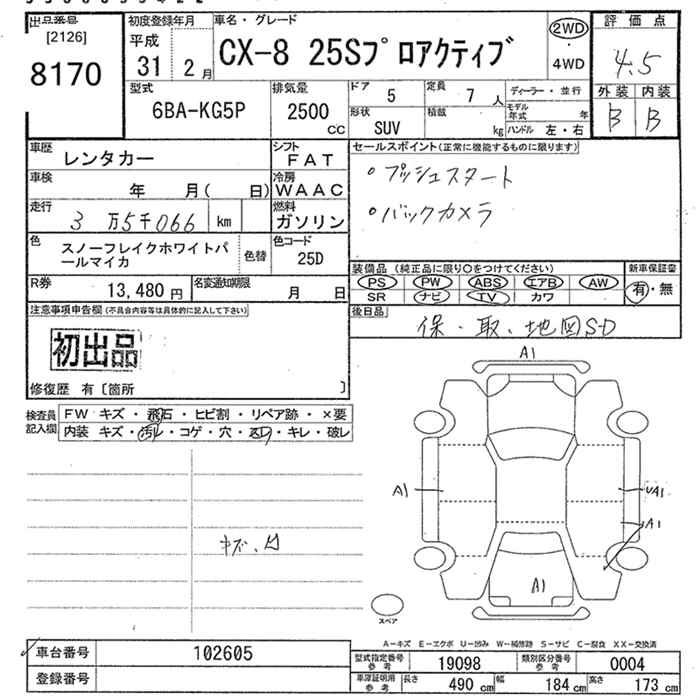 出品番号
[2126]
8170
初度登録年月
平成
31 2 月
車名・グレード
CX-8 25Sプロアクティブ
2WD
・
4WD
評価点
4.5
外装 内装
B B
型式
6BA-KG5P
排気量
2500
CC
ドア 5
定員 7 人
ディーラー・並行
形状 SUV
積載 kg
モデル年式 年
ハンドル 左・右
車歴 レンタカー
シフト
FAT
車検 年 月( 日)
冷房
WAAC
走行 3 万5千066 km
燃料
ガソリン
色 スノーフレイクホワイトパ
ールマイカ
色替
色コード
25D
R券 13,480 円
名変通知期限 月 日
セールスポイント(正常に機能するものに限ります)
・プッシュスタート
・バックカメラ
装備品 (純正品に限り○をつけてください)
新車保証書
PS PW ABS エアB AW
SR ナビ TV カワ
有・無
後日品
保・取、地図SD
注意事項申告欄(不具合内容等は具体的に記入して下さい)
初出品
修復歴 有〔箇所 〕
検査員
記入欄
FW キズ・飛石・ヒビ割・リペア跡・×要
内装 キズ・汚レ・コゲ・穴・スレ・キレ・破レ
キズ、凹
A1
A1
UA1
A1
A1
スペア
A−キズ E−エクボ U−凹み W−補修跡 S−サビ C−腐食 XX−交換済
車台番号 102605
登録番号
型式指定番号
参考
19098
類別区分番号
参考
0004
車庫証明用
参考
長さ 490 cm
幅 184 cm
高さ 173 cm